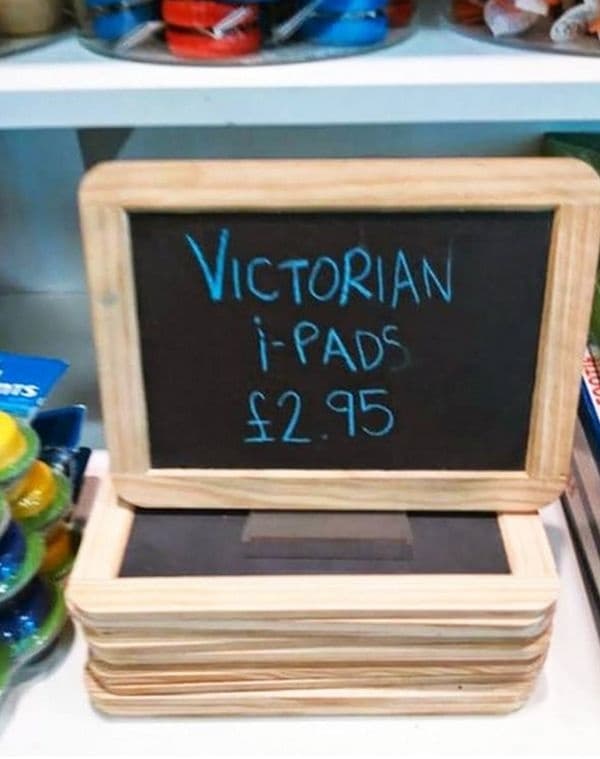 VICTORIAN
i-PADS
£2.95